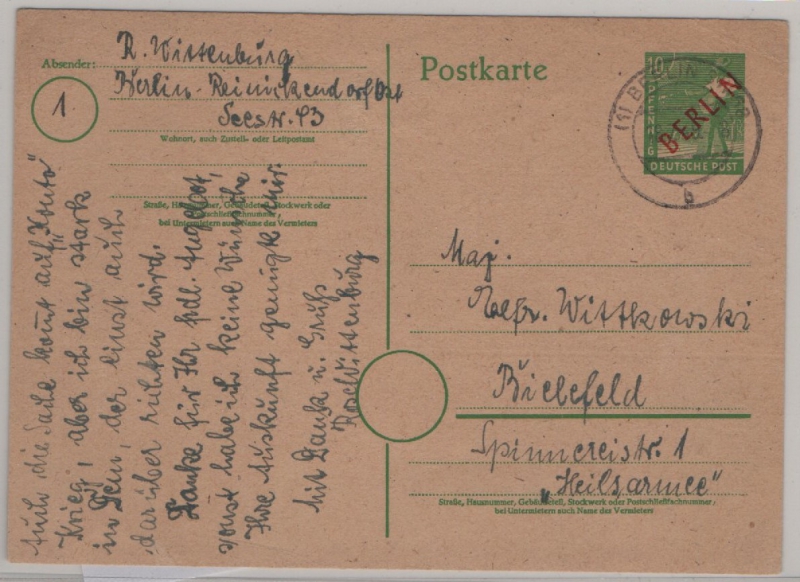 Absender:
R. Wittenburg
Berlin-Reinickendorf Ost
Seestr. 43
1
Wohnort, auch Zustell- oder Leitpostamt
Straße, Hausnummer, Gebäudeteil, Stockwerk oder
Postschließfachnummer,
bei Untermietern auch Name des Vermieters
Auch die Sache kommt auf „Konto"
Krieg, aber ich bin stark
in Dem, der einst auch
darüber richten wird.
Danke für Ihr frdl. Angebot,
sonst habe ich keine Wünsche
Ihre Auskunft genügt mir.
Mit Dank u. Gruß
Wittenburg
Postkarte
10
PFENNIG
DEUTSCHE POST
BERLIN
(1) BERLIN
b
Maj.
Wittkowski
Bielefeld
Spinnereistr. 1
„Heilsarmee"
Straße, Hausnummer, Gebäudeteil, Stockwerk oder Postschließfachnummer,
bei Untermietern auch Name des Vermieters